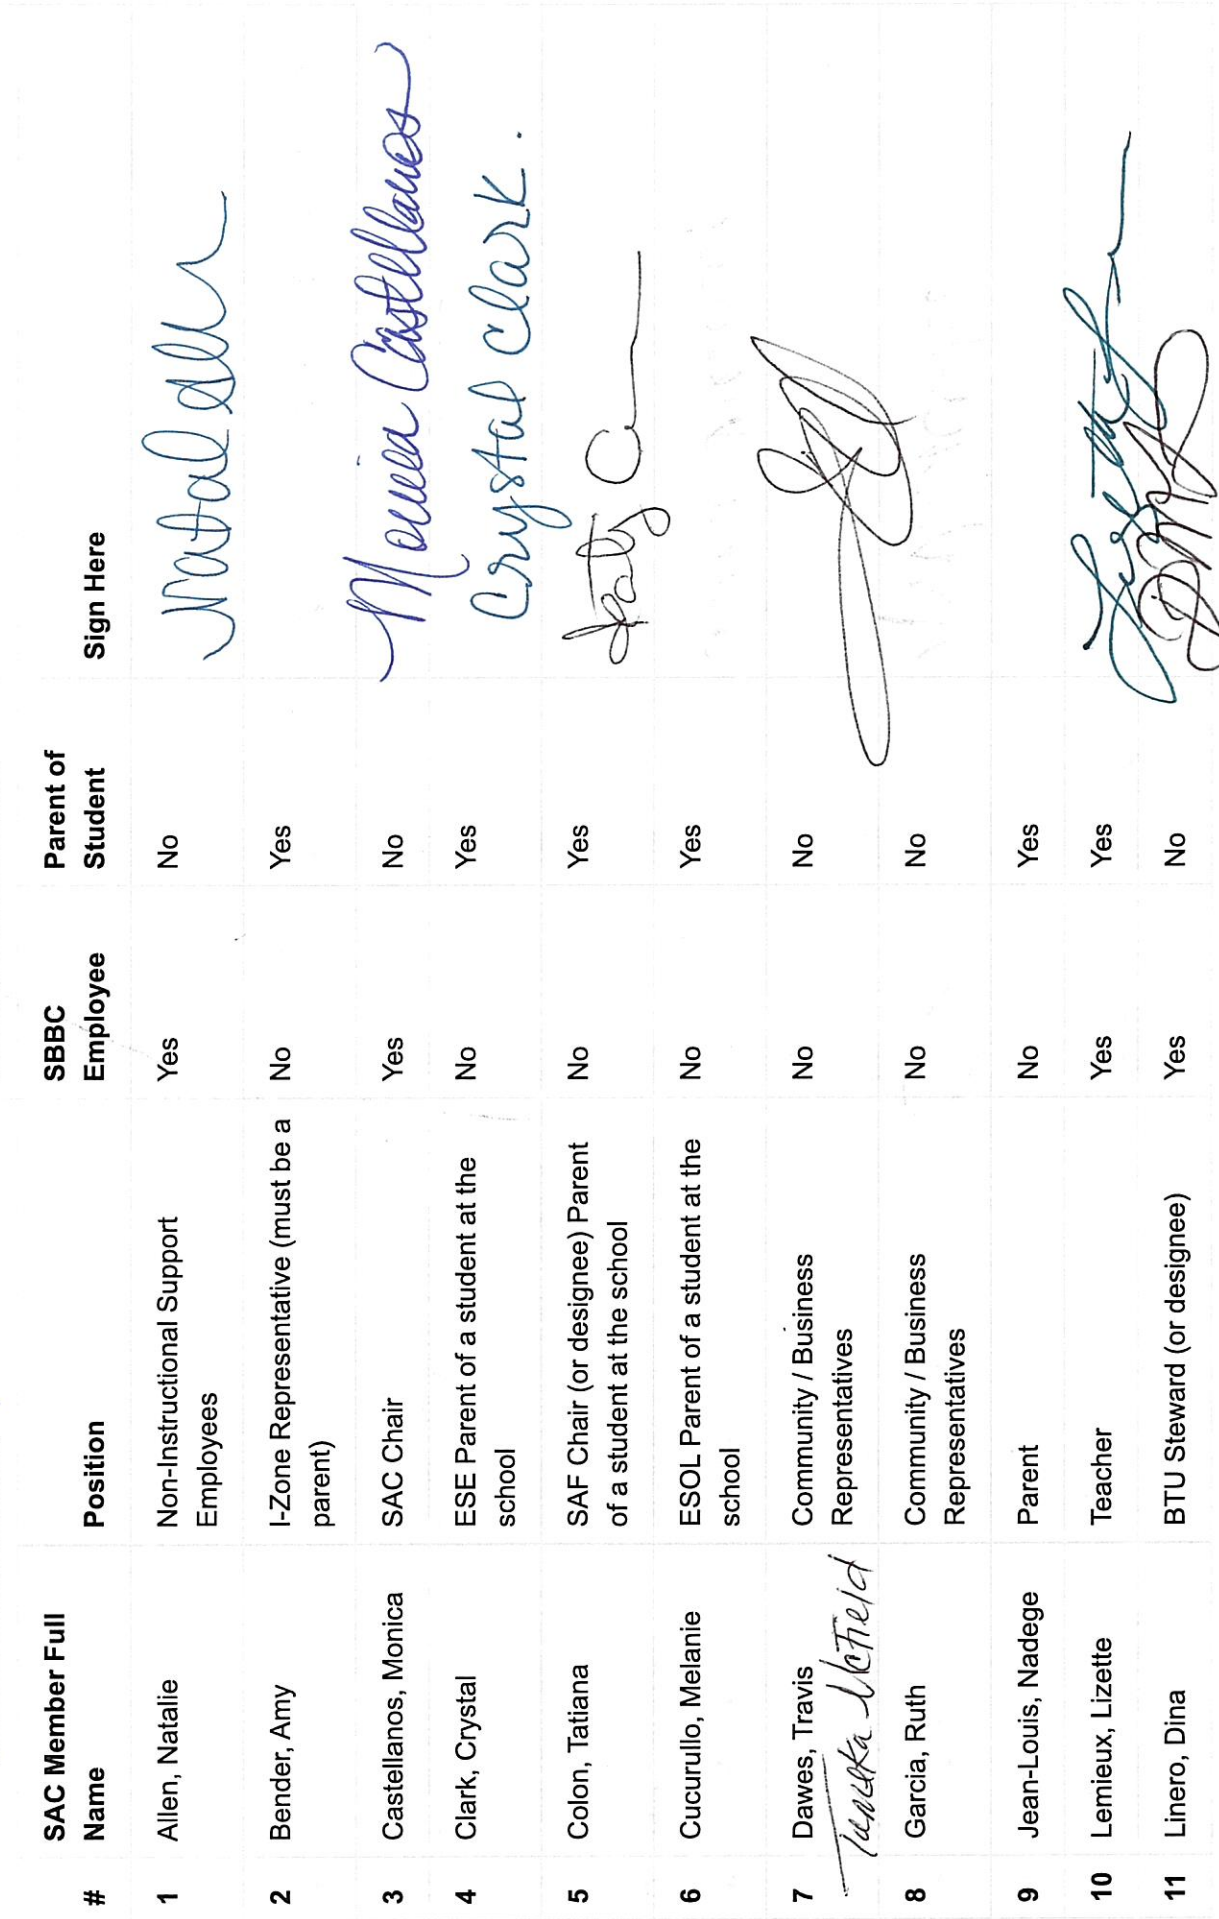 # SAC Member Full Name Position SBBC Employee Parent of Student Sign Here
1 Allen, Natalie Non-Instructional Support Employees Yes No
2 Bender, Amy I-Zone Representative (must be a parent) No Yes
3 Castellanos, Monica SAC Chair Yes No Monica Castellanos
4 Clark, Crystal ESE Parent of a student at the school No Yes Crystal Clark.
5 Colon, Tatiana SAF Chair (or designee) Parent of a student at the school No Yes
6 Cucurullo, Melanie ESOL Parent of a student at the school No Yes
7 Dawes, Travis Community / Business Representatives No No
McField
8 Garcia, Ruth Community / Business Representatives No No
9 Jean-Louis, Nadege Parent No Yes
10 Lemieux, Lizette Teacher Yes Yes
11 Linero, Dina BTU Steward (or designee) Yes No